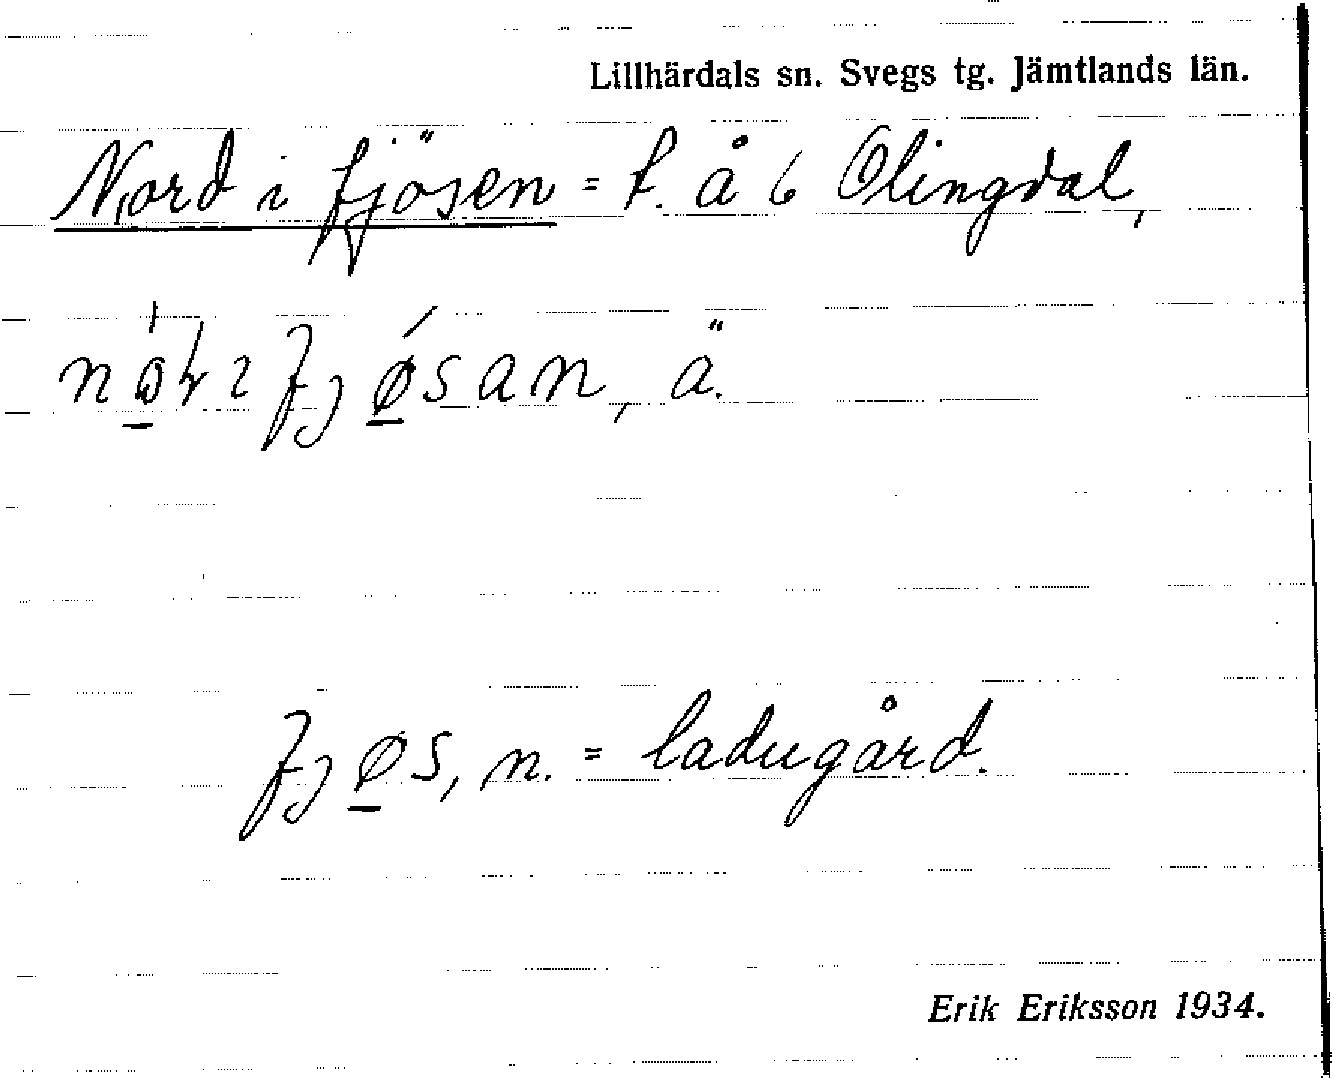 Lillhärdals sn. Svegs tg. Jämtlands län.
Nord i fjösen = f. å 6 Olingdal,
fjøsan, ä.
fjøs, n. = ladugård.
Erik Eriksson 1934.